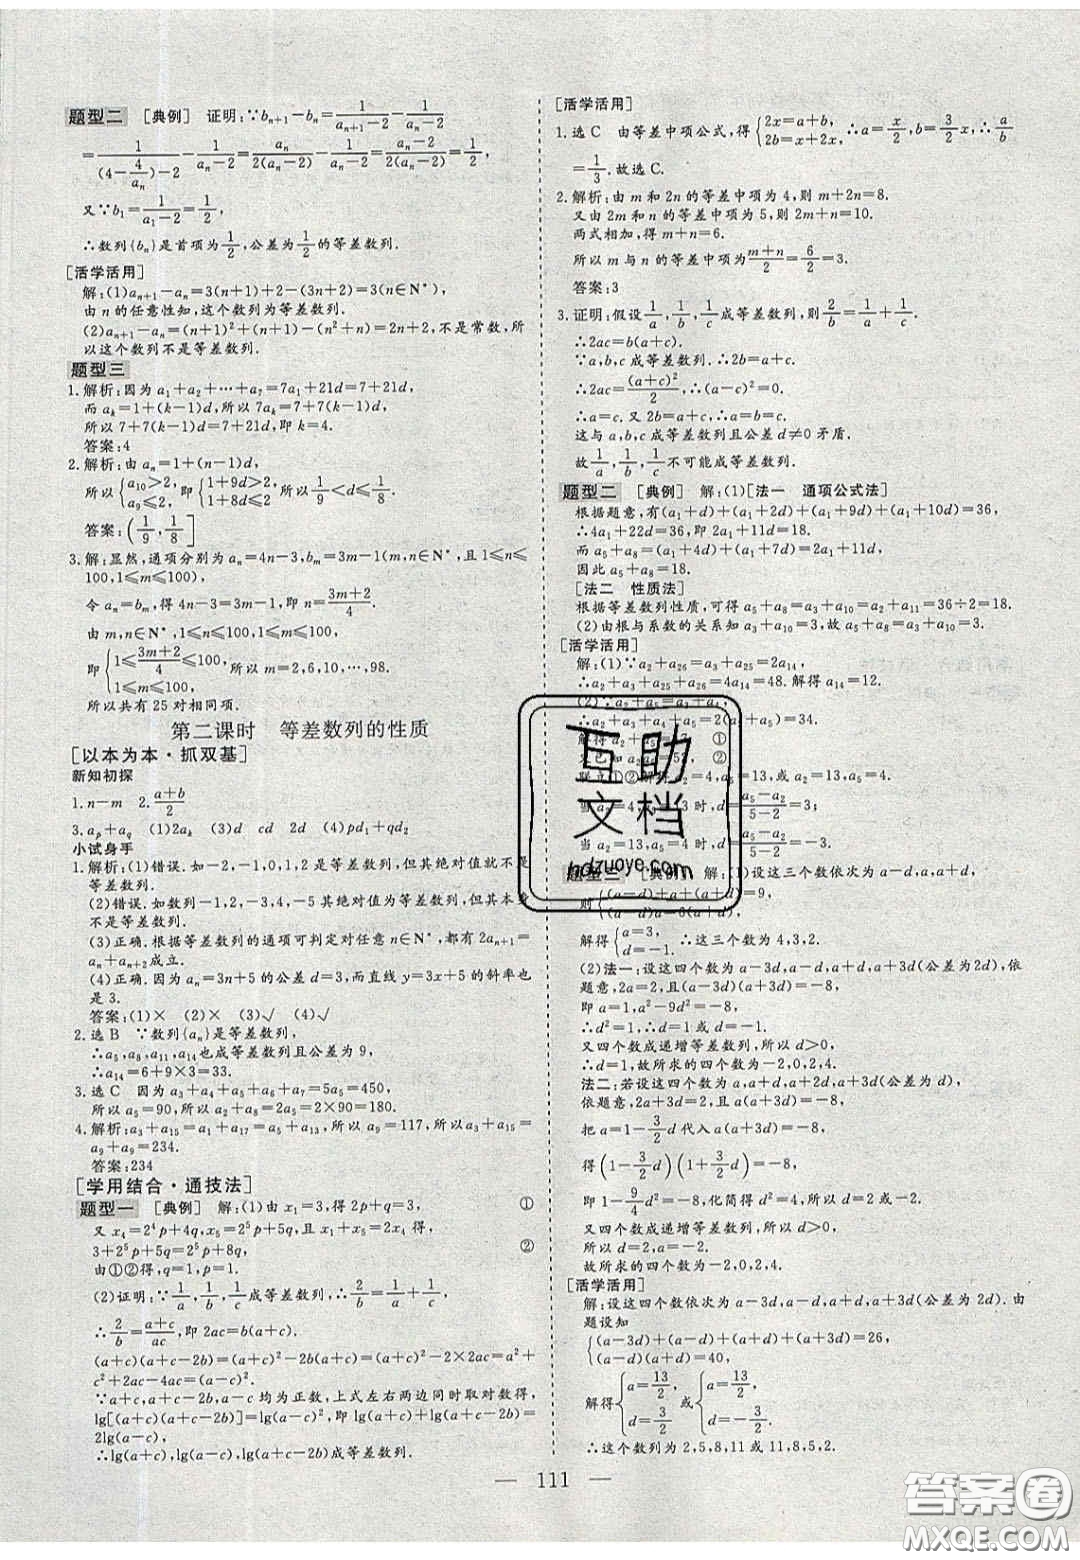 题型二 [典例] 证明:∵b_{n+1}-b_n=1/(a_{n+1}-2)-1/(a_n-2)
=1/((4-4/a_n)-2)-1/(a_n-2)=a_n/(2(a_n-2))-1/(a_n-2)=1/2,
又∵b_1=1/(a_1-2)=1/2,
∴数列{b_n}是首项为1/2,公差为1/2的等差数列.
[活学活用]
解:(1)a_{n+1}-a_n=3(n+1)+2-(3n+2)=3(n∈N*),
由n的任意性知,这个数列为等差数列.
(2)a_{n+1}-a_n=(n+1)²+(n+1)-(n²+n)=2n+2,不是常数,所
以这个数列不是等差数列.
题型三
1.解析:因为a_1+a_2+⋯+a_7=7a_1+21d=7+21d,
而a_k=1+(k-1)d,所以7a_k=7+7(k-1)d,
所以7+7(k-1)d=7+21d,即k=4.
答案:4
2.解析:由a_n=1+(n-1)d,
所以{a_10>2, a_9≤2, 即{1+9d>2, 1+8d≤2, 所以1/9<d≤1/8.
答案:(1/9,1/8]
3.解:显然,通项分别为a_n=4n-3,b_m=3m-1(m,n∈N*,且1≤n≤
100,1≤m≤100).
令a_n=b_m,得4n-3=3m-1,即n=(3m+2)/4.
由m,n∈N*,1≤n≤100,1≤m≤100,
即{1≤(3m+2)/4≤100, 1≤m≤100, 所以m=2,6,10,⋯,98.
所以共有25对相同项.
第二课时 等差数列的性质
[以本为本·抓双基]
新知初探
1.n-m 2.(a+b)/2
3.a_p+a_q (1)2a_k (3)d cd 2d (4)pd_1+qd_2
小试身手
1.解析:(1)错误.如-2,-1,0,1,2是等差数列,但其绝对值就不是
等差数列.
(2)错误.如数列-1,2,-3,4,-5其绝对值为等差数列,但其本身
不是等差数列.
(3)正确.根据等差数列的通项可判定对任意n∈N*,都有2a_{n+1}=
a_n+a_{n+2}成立.
(4)正确.因为a_n=3n+5的公差d=3,而直线y=3x+5的斜率也
是3.
答案:(1)× (2)× (3)√ (4)√
2.选B ∵数列{a_n}是等差数列,
∴a_5,a_8,a_11,a_14也成等差数列且公差为9,
∴a_14=6+9×3=33.
3.选C 因为a_3+a_4+a_5+a_6+a_7=5a_5=450,
所以a_5=90,所以a_2+a_8=2a_5=2×90=180.
4.解析:a_3+a_15=a_1+a_17=a_9+a_9,所以a_9=117,所以a_3+a_15=
a_9+a_9=234.
答案:234
[学用结合·通技法]
题型一 [典例] 解:(1)由x_1=3,得2p+q=3, ①
又x_4=2⁴p+4q,x_5=2⁵p+5q,且x_1+x_5=2x_4,得
3+2⁵p+5q=2⁵p+8q, ②
由①②得,q=1,p=1.
(2)证明:∵1/a,1/b,1/c成等差数列,∴2/b=1/a+1/c,
∴2/b=(a+c)/ac,即2ac=b(a+c).
(a+c)(a+c-2b)=(a+c)²-2b(a+c)=(a+c)²-2×2ac=a²+
c²+2ac-4ac=(a-c)².
∵a+c,a+c-2b,a-c均为正数,上式左右两边同时取对数得,
lg[(a+c)(a+c-2b)]=lg(a-c)²,即lg(a+c)+lg(a+c-2b)=
2lg(a-c),
∴lg(a+c),lg(a-c),lg(a+c-2b)成等差数列.
[活学活用]
1.选C 由等差中项公式,得{2x=a+b, 2b=x+2x, ∴a=x/2,b=3/2x,∴a/b
=1/3.故选C.
2.解析:由m和2n的等差中项为4,则m+2n=8.
又由2m和n的等差中项为5,则2m+n=10.
两式相加,得m+n=6.
所以m与n的等差中项为(m+n)/2=6/2=3.
答案:3
3.证明:假设1/a,1/b,1/c成等差数列,则2/b=1/a+1/c,
∴2ac=b(a+c).
∵a,b,c成等差数列,∴2b=a+c,
∴2ac=(a+c)²/2,∴(a-c)²=0.
∴a=c.又2b=a+c,∴a=b=c.
这与a,b,c成等差数列且公差d≠0矛盾.
故1/a,1/b,1/c不可能成等差数列.
题型二 [典例] 解:(1)[法一 通项公式法]
根据题意,有(a_1+d)+(a_1+2d)+(a_1+9d)+(a_1+10d)=36,
∴4a_1+22d=36,即2a_1+11d=18.
而a_5+a_8=(a_1+4d)+(a_1+7d)=2a_1+11d,
因此a_5+a_8=18.
[法二 性质法]
根据等差数列性质,可得a_5+a_8=a_3+a_10=a_2+a_11=36÷2=18.
(2)由根与系数的关系知a_3+a_10=3,故a_5+a_8=a_3+a_10=3.
[活学活用]
解:(1)∵a_2+a_26=a_3+a_25=2a_14,
∴a_2+a_3+a_25+a_26=4a_14=48.解得a_14=12.
a_2+a_3+a_4+a_5=2(a_2+a_5)=34.
①
②
题型三 [典例] 解:(1)设这三个数依次为a-d,a,a+d,
则{(a-d)+a+(a+d)=9, (a-d)a=6(a+d),
解得{a=3, d=-1. ∴这三个数为4,3,2.
(2)法一:设这四个数为a-3d,a-d,a+d,a+3d(公差为2d),依
题意,2a=2,且(a-3d)(a+3d)=-8,
即a=1,a²-9d²=-8,
∴d²=1,∴d=1或d=-1.
又四个数成递增等差数列,所以d>0,
∴d=1,故所求的四个数为-2,0,2,4.
法二:若设这四个数为a,a+d,a+2d,a+3d(公差为d),
依题意,2a+3d=2,且a(a+3d)=-8,
把a=1-3/2d代入a(a+3d)=-8,
得(1-3/2d)(1+3/2d)=-8,
即1-9/4d²=-8,化简得d²=4,所以d=2或-2.
又四个数成递增等差数列,所以d>0,
所以d=2,a=-2.
故所求的四个数为-2,0,2,4.
[活学活用]
解:设这四个数依次为a-3d,a-d,a+d,a+3d(公差为2d).由
题设知
{(a-3d)+(a-d)+(a+d)+(a+3d)=26, (a-d)(a+d)=40,
解得{a=13/2, d=3/2 或{a=13/2, d=-3/2.
∴这个数列为2,5,8,11或11,8,5,2.
— 111 —
互助
文档
hdzuoye.com
答案圈
MXQE.COM